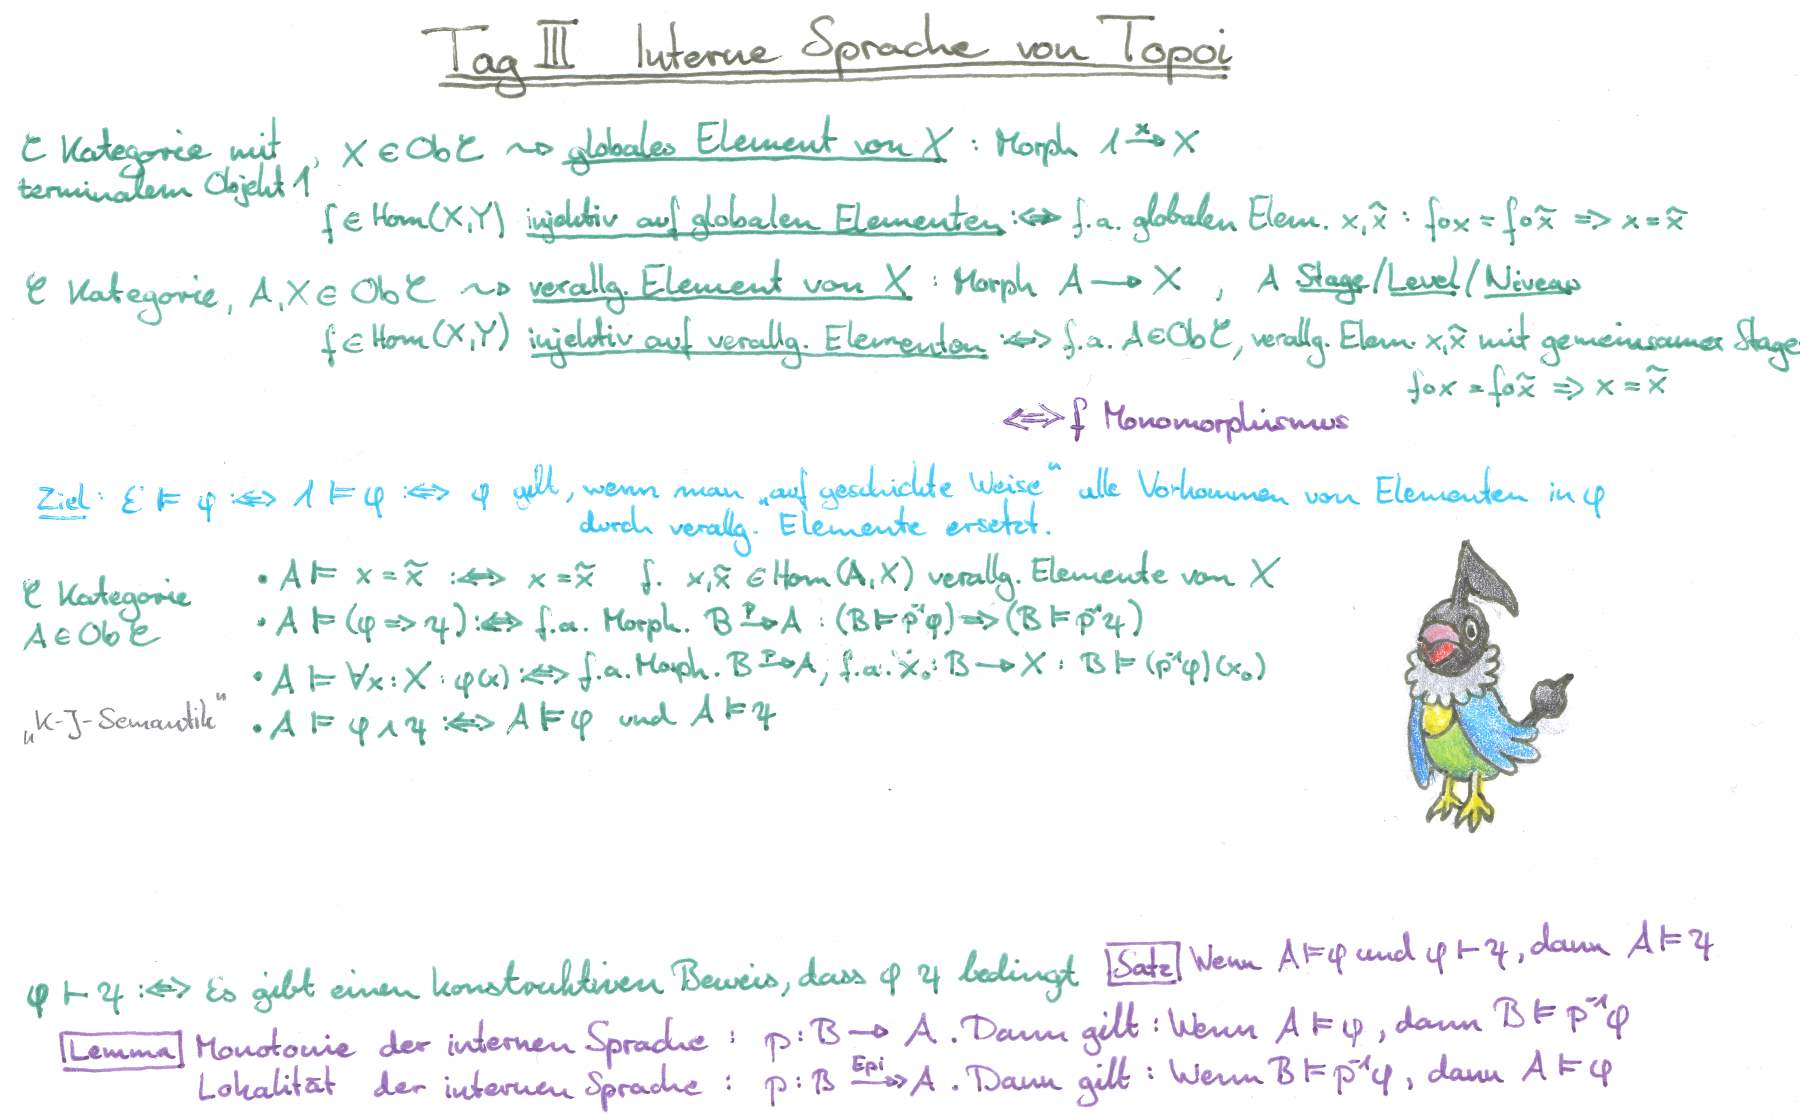 Tag III Interne Sprache von Topoi
C Kategorie mit terminalem Objekt 1, X ∈ Ob C ⇝ globales Element von X : Morph 1 –x→ X
f ∈ Hom(X,Y) injektiv auf globalen Elementen :⇔ f.a. globalen Elem. x, x̃ : f∘x = f∘x̃ ⇒ x = x̃
C Kategorie, A, X ∈ Ob C ⇝ verallg. Element von X : Morph A → X , A Stage/Level/Niveau
f ∈ Hom(X,Y) injektiv auf verallg. Elementen :⇔ f.a. A ∈ Ob C, verallg. Elem. x, x̃ mit gemeinsamer Stage
f∘x = f∘x̃ ⇒ x = x̃
⇔ f Monomorphismus
Ziel: E ⊨ φ :⇔ 1 ⊨ φ :⇔ φ gilt, wenn man „auf geschickte Weise“ alle Vorkommen von Elementen in φ
durch verallg. Elemente ersetzt.
C Kategorie
A ∈ Ob C
„K-J-Semantik“
• A ⊨ x = x̃ :⇔ x = x̃ f. x, x̃ ∈ Hom(A,X) verallg. Elemente von X
• A ⊨ (φ ⇒ ψ) :⇔ f.a. Morph. B –p→ A : (B ⊨ p⁻¹φ) ⇒ (B ⊨ p⁻¹ψ)
• A ⊨ ∀x : X : φ(x) :⇔ f.a. Morph. B –p→ A, f.a. x₀ : B → X : B ⊨ (p⁻¹φ)(x₀)
• A ⊨ φ ∧ ψ :⇔ A ⊨ φ und A ⊨ ψ
φ ⊢ ψ :⇔ Es gibt einen konstruktiven Beweis, dass φ ψ bedingt
Satz Wenn A ⊨ φ und φ ⊢ ψ, dann A ⊨ ψ
Lemma Monotonie der internen Sprache : p : B → A . Dann gilt : Wenn A ⊨ φ, dann B ⊨ p⁻¹φ
Lokalität der internen Sprache : p : B –Epi↠ A . Dann gilt : Wenn B ⊨ p⁻¹φ, dann A ⊨ φ